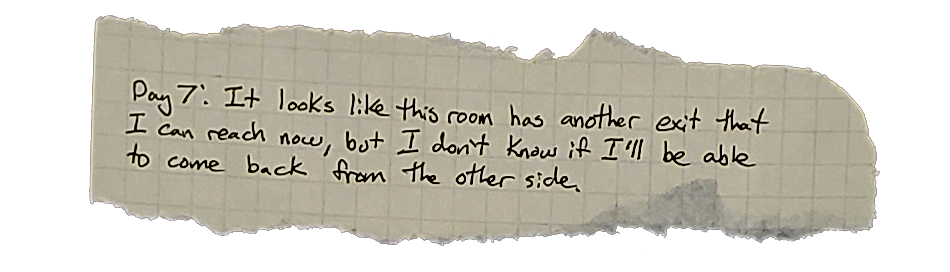 Day 7: It looks like this room has another exit that
I can reach now, but I don't know if I'll be able
to come back from the other side.